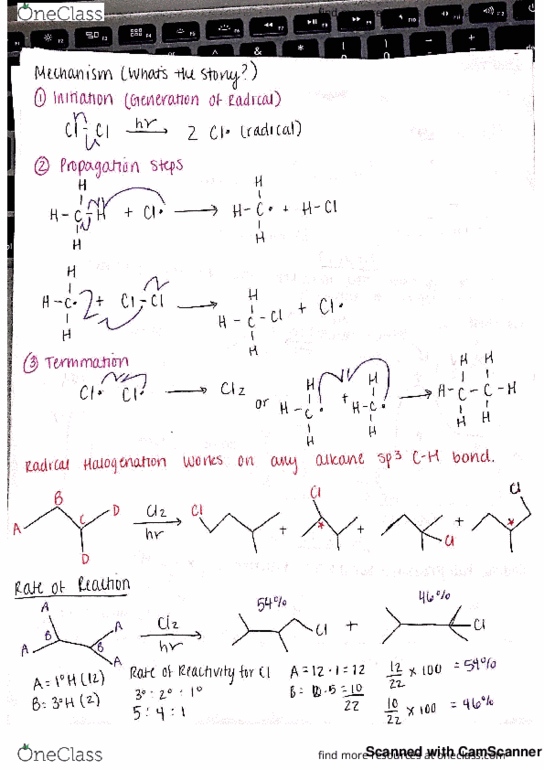 OneClass
Mechanism (What's the story?)
① Initiation (Generation of Radical)
Cl-Cl hr 2 Cl• (radical)
② Propagation steps
H H
H-C-H + Cl• → H-C• + H-Cl
H H
H H
H-C• + Cl-Cl → H-C-Cl + Cl•
H H
③ Termination
Cl• Cl• → Cl2 or H-C• + H-C• → H-C-C-H
H H H H
H H H H
Radical Halogenation works on any alkane sp3 C-H bond.
A B C D D Cl2 hr Cl + Cl * + Cl + Cl *
Rate of Reaction
A A B B A A Cl2 hr 54% Cl + 46% Cl
A = 1°H (12)
B = 3°H (2)
Rate of Reactivity for Cl
3° : 2° : 1°
5 : 4 : 1
A = 12 · 1 = 12
B = · 5 = 10
22
12/22 x 100 = 54%
10/22 x 100 = 46%
OneClass
find more resources at oneclass.com
Scanned with CamScanner